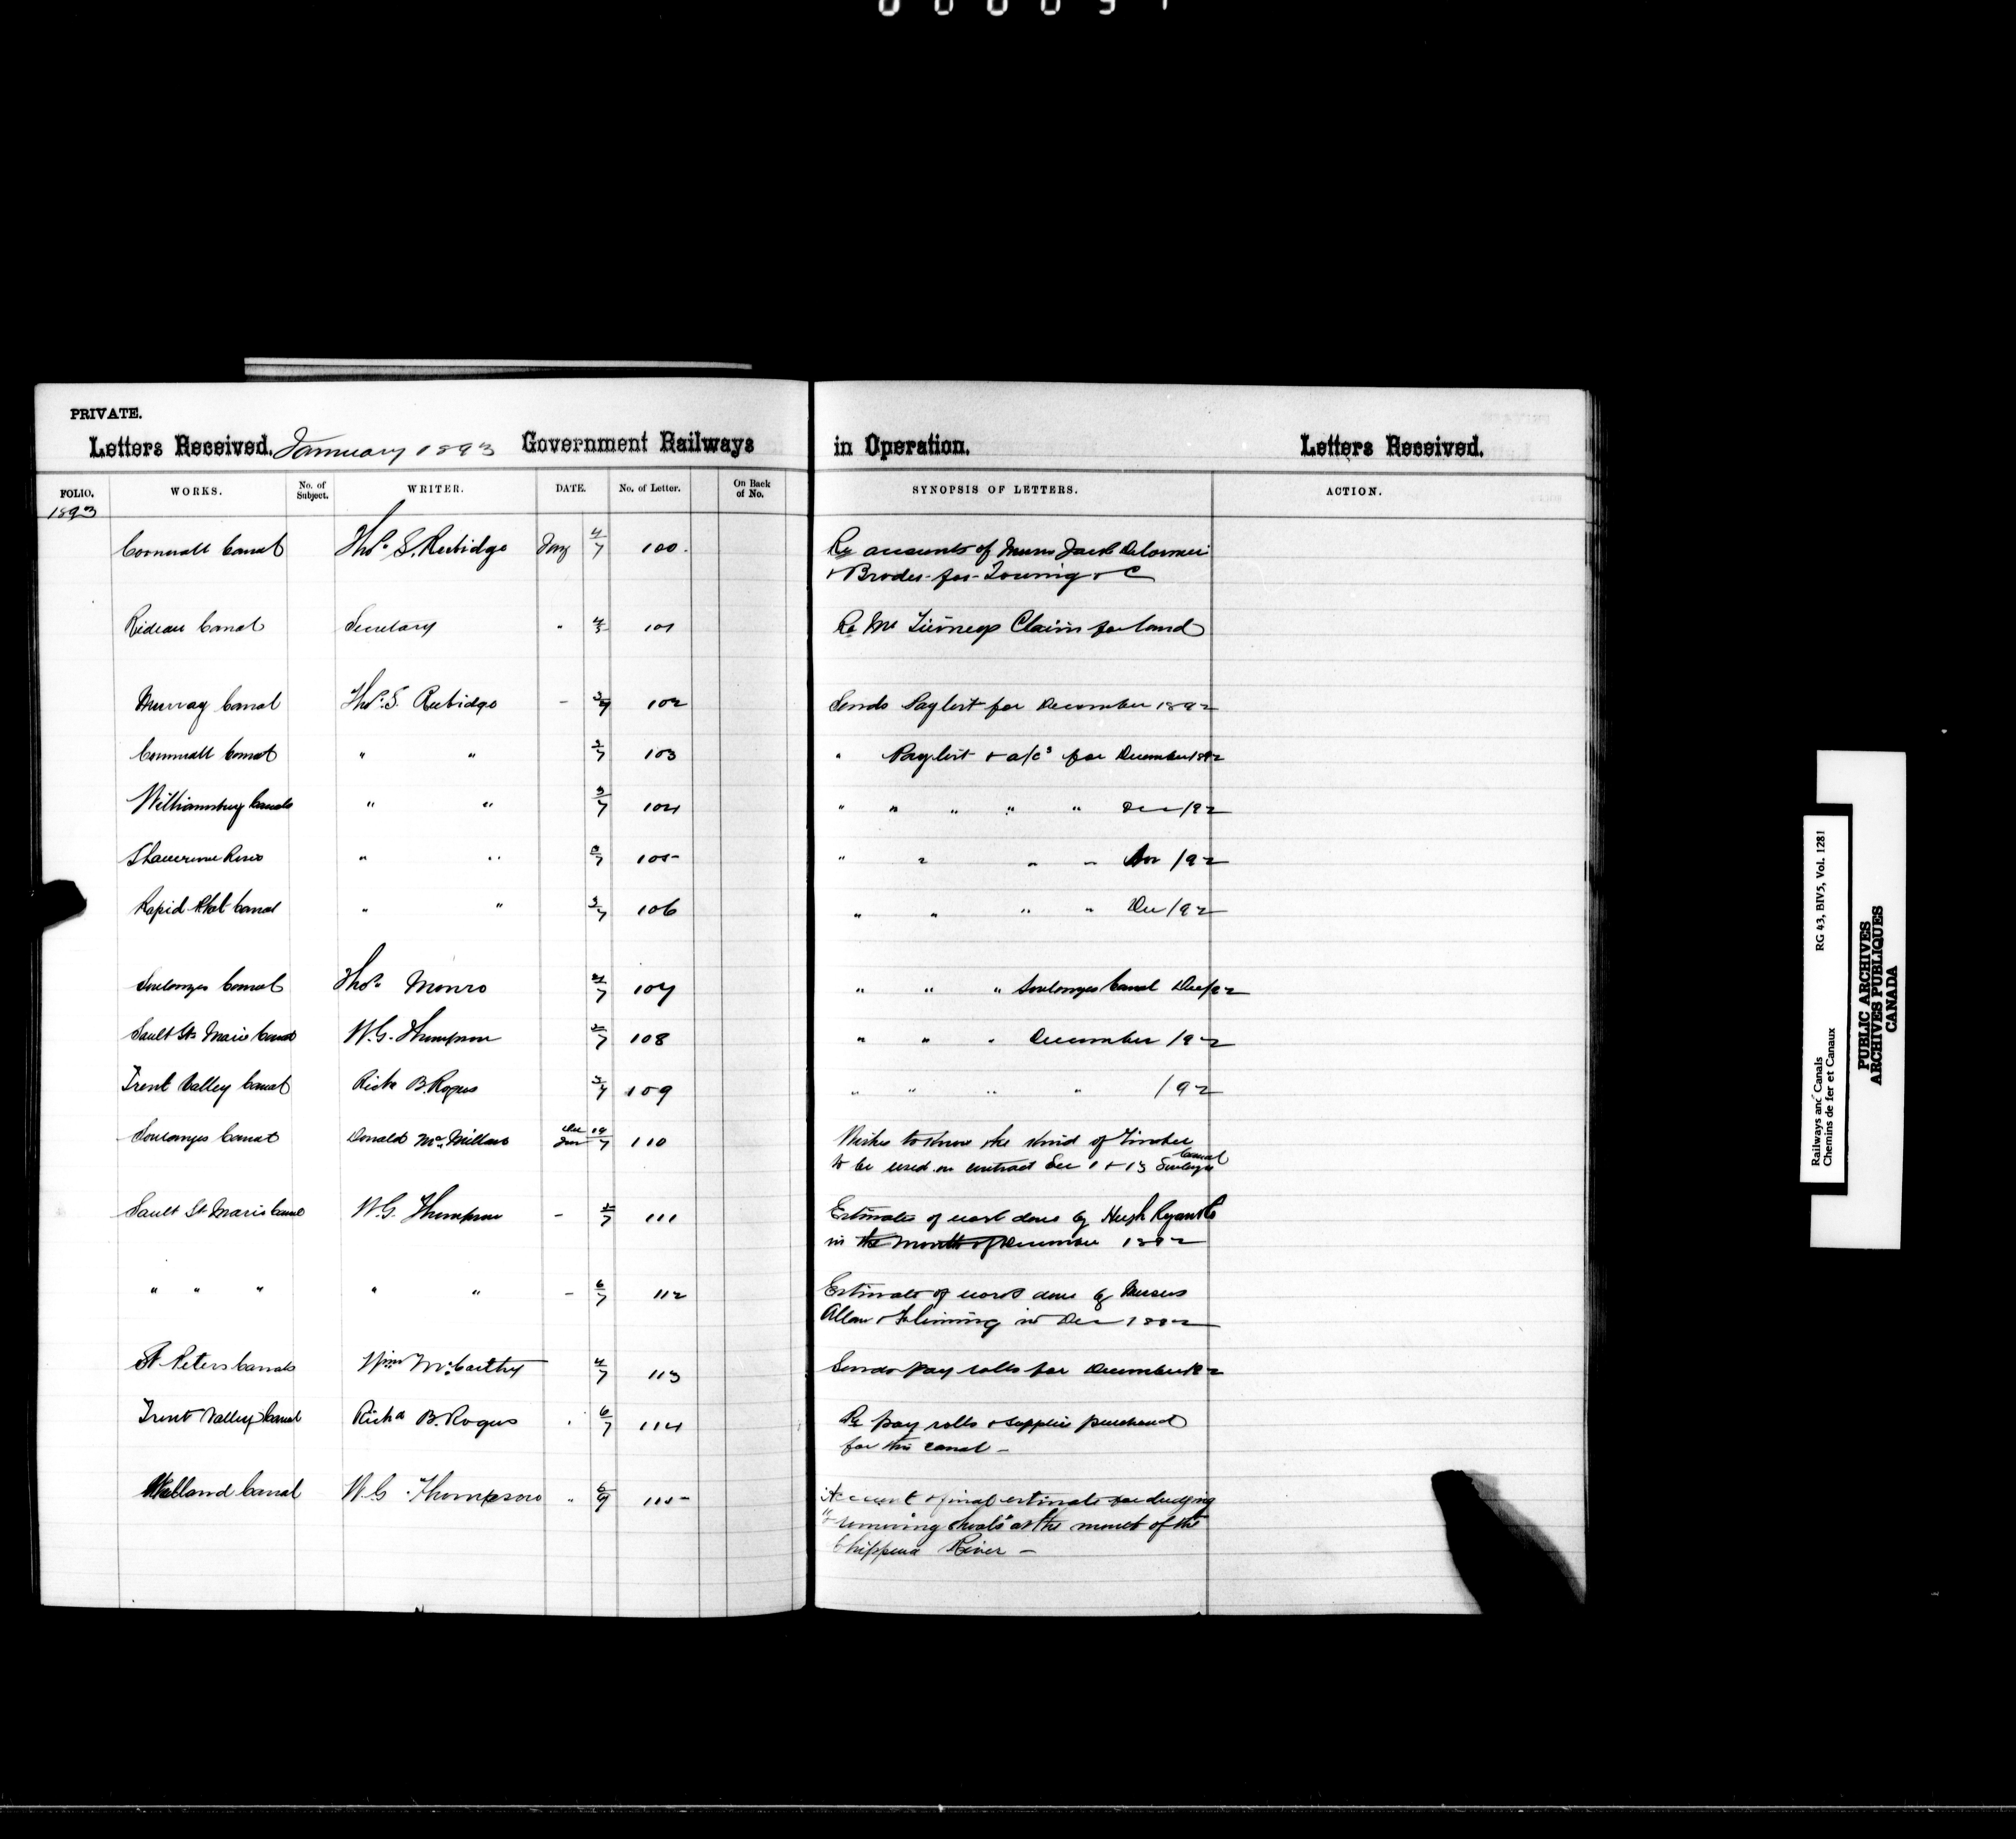 PRIVATE.
Letters Received. January 1893 Government Railways in Operation. Letters Received.
FOLIO. WORKS. No. of Subject. WRITER. DATE. No. of Letter. On Back of No. SYNOPSIS OF LETTERS. ACTION.
1893
Cornwall Canal Thos. S. Rubidge Jany 4/7 100. Re accounts of Messrs Jacob Delormie
+ Broder for Towing + C
Rideau Canal Secretary " 4/5 101 Re Mr Tierneys Claim for land
Murray Canal Thos. S. Rubidge - 3/7 102 Sends Paylist for December 1892
Cornwall Canal " " 3/7 103 " Paylist + a/cs for December 1892
Williamsburg Canals " " 3/7 104 " " " " " Dec /92
" " 3/7 105 " " " " /92
Rapid Plat Canal " " 3/7 106 " " " " Dec /92
Soulanges Canal Thos. Monro 4/7 107 " " " Soulanges Canal Dec/92
Sault Ste Marie Canal W.G. Thompson 5/7 108 " " " December /92
Trent Valley Canal Richd B. Rogers 5/7 109 " " " " /92
Soulanges Canal Donald McMillan Dec 19 Jan 7 110 Wishes to know the kind of Timber
to be used on contract Sec 1 + 13 Soulanges Canal
Sault St Marie Canal W.G. Thompson - 5/7 111 Estimates of work done by Hugh Ryan + Co
in the month of December 1892
" " " " " - 6/7 112 Estimate of work done by Messrs
Allan + Fleming in Dec 1892
St Peters Canals Wm McCarthy 4/7 113 Sends pay rolls for December 92
Trent Valley Canal Richd B. Rogers " 6/7 114 Re pay rolls + supplies purchased
for this canal -
Welland Canal W.G. Thompson " 6/9 115 Account + final estimate for dredging
"+ removing shoals" at the mouth of the
Chippewa River -
Railways and Canals RG 43, BIV5, Vol. 1281
Chemins de fer et Canaux
PUBLIC ARCHIVES
ARCHIVES PUBLIQUES
CANADA